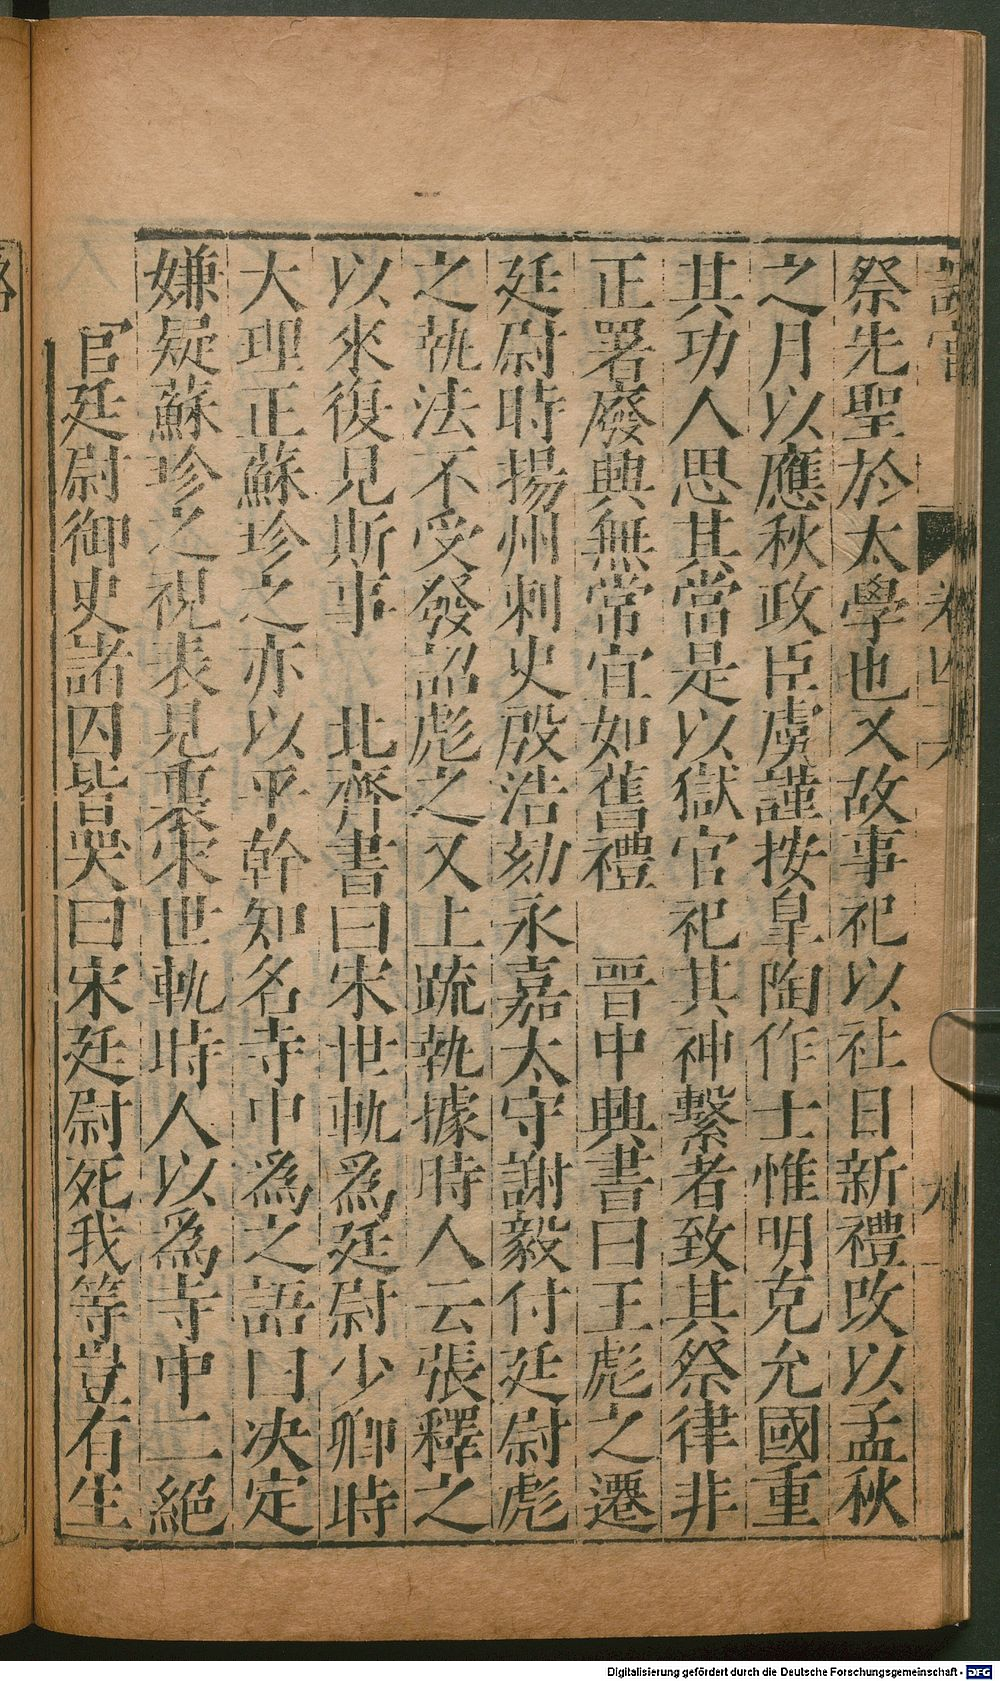 祭先聖於太學也又故事祀以社日新禮改以孟秋
之月以應秋政臣虞謹按皇陶作士惟明克允國重
其功人思其當是以獄官祀其神繫者致其祭律非
正署廢興無常宜如舊禮　晉中興書曰王彪之遷
廷尉時揚州刺史殷浩劾永嘉太守謝毅付廷尉彪
之執法不受發詔彪之又上疏執據時人云張釋之
以來復見斯事　北齊書曰宋世軌爲廷尉少卿時
大理正蘇珍之亦以平幹知名寺中爲之語曰决定
嫌疑蘇珍之視表見裏宋世軌時人以爲寺中二絕
官廷尉御史諸囚皆哭曰宋廷尉死我等豈有生
卷四
九
Digitalisierung gefördert durch die Deutsche Forschungsgemeinschaft - DFG